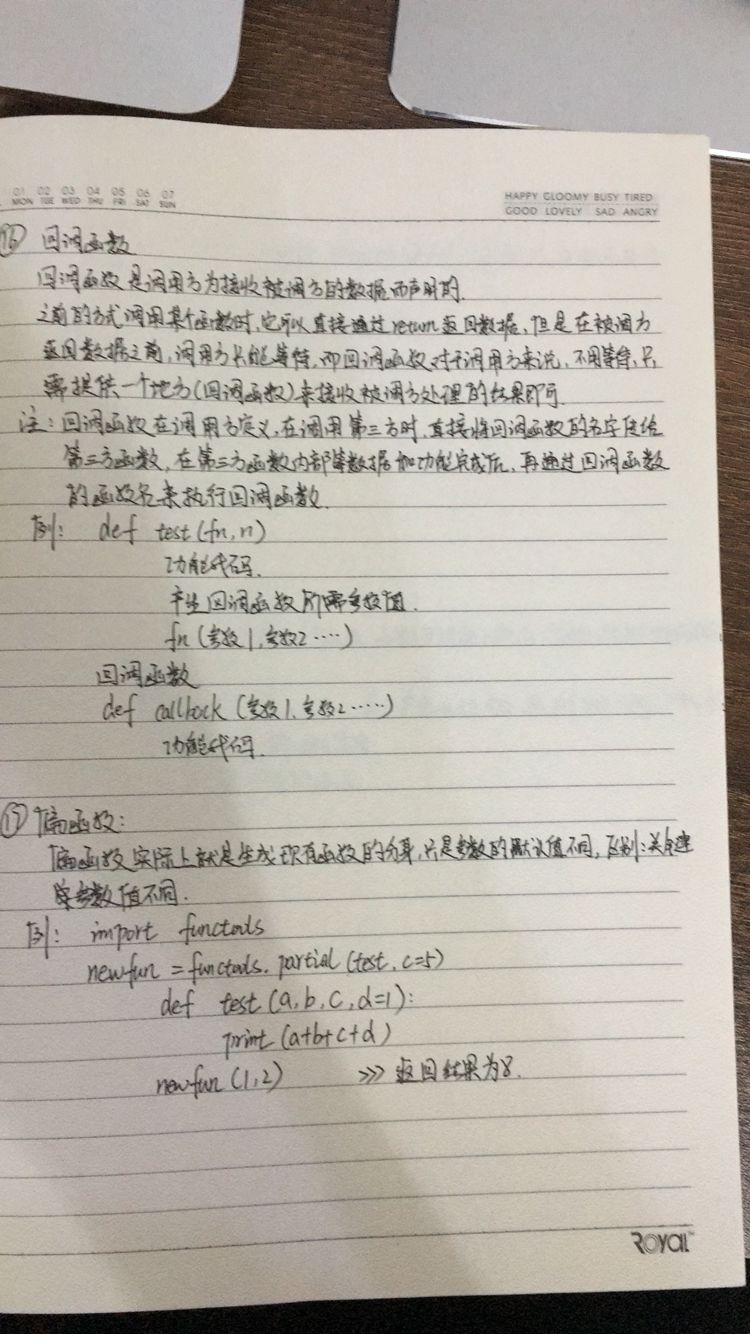 01 02 03 04 05 06 07
MON TUE WED THU FRI SAT SUN
HAPPY GLOOMY BUSY TIRED
GOOD LOVELY SAD ANGRY
⑯ 回调函数
回调函数是调用方为接收被调方的数据而声明的.
之前的方式调用某个函数时,它可以直接通过return返回数据,但是在被调方
返回数据之前,调用方只能等待,而回调函数对于调用方来说,不用等待,只
需提供一个地方(回调函数)来接收被调方处理的结果即可.
注:回调函数在调用方定义,在调用第三方时,直接将回调函数的名字传给
第三方函数,在第三方函数内部等数据加功能完成后,再通过回调函数
的函数名来执行回调函数.
例: def test(fn,n)
功能代码.
产生回调函数所需参数值.
fn(参数1,参数2····)
回调函数
def callback(参数1,参数2·····)
功能代码.
⑰ 偏函数:
偏函数实际上就是生成现有函数的分身,只是参数的默认值不同,区别:关键
字参数值不同.
例: import functools
newfun = functools.partial(test,c=5)
def test(a,b,c,d=1):
print(a+b+c+d)
newfun(1,2) >>> 返回结果为8.
ROYAL